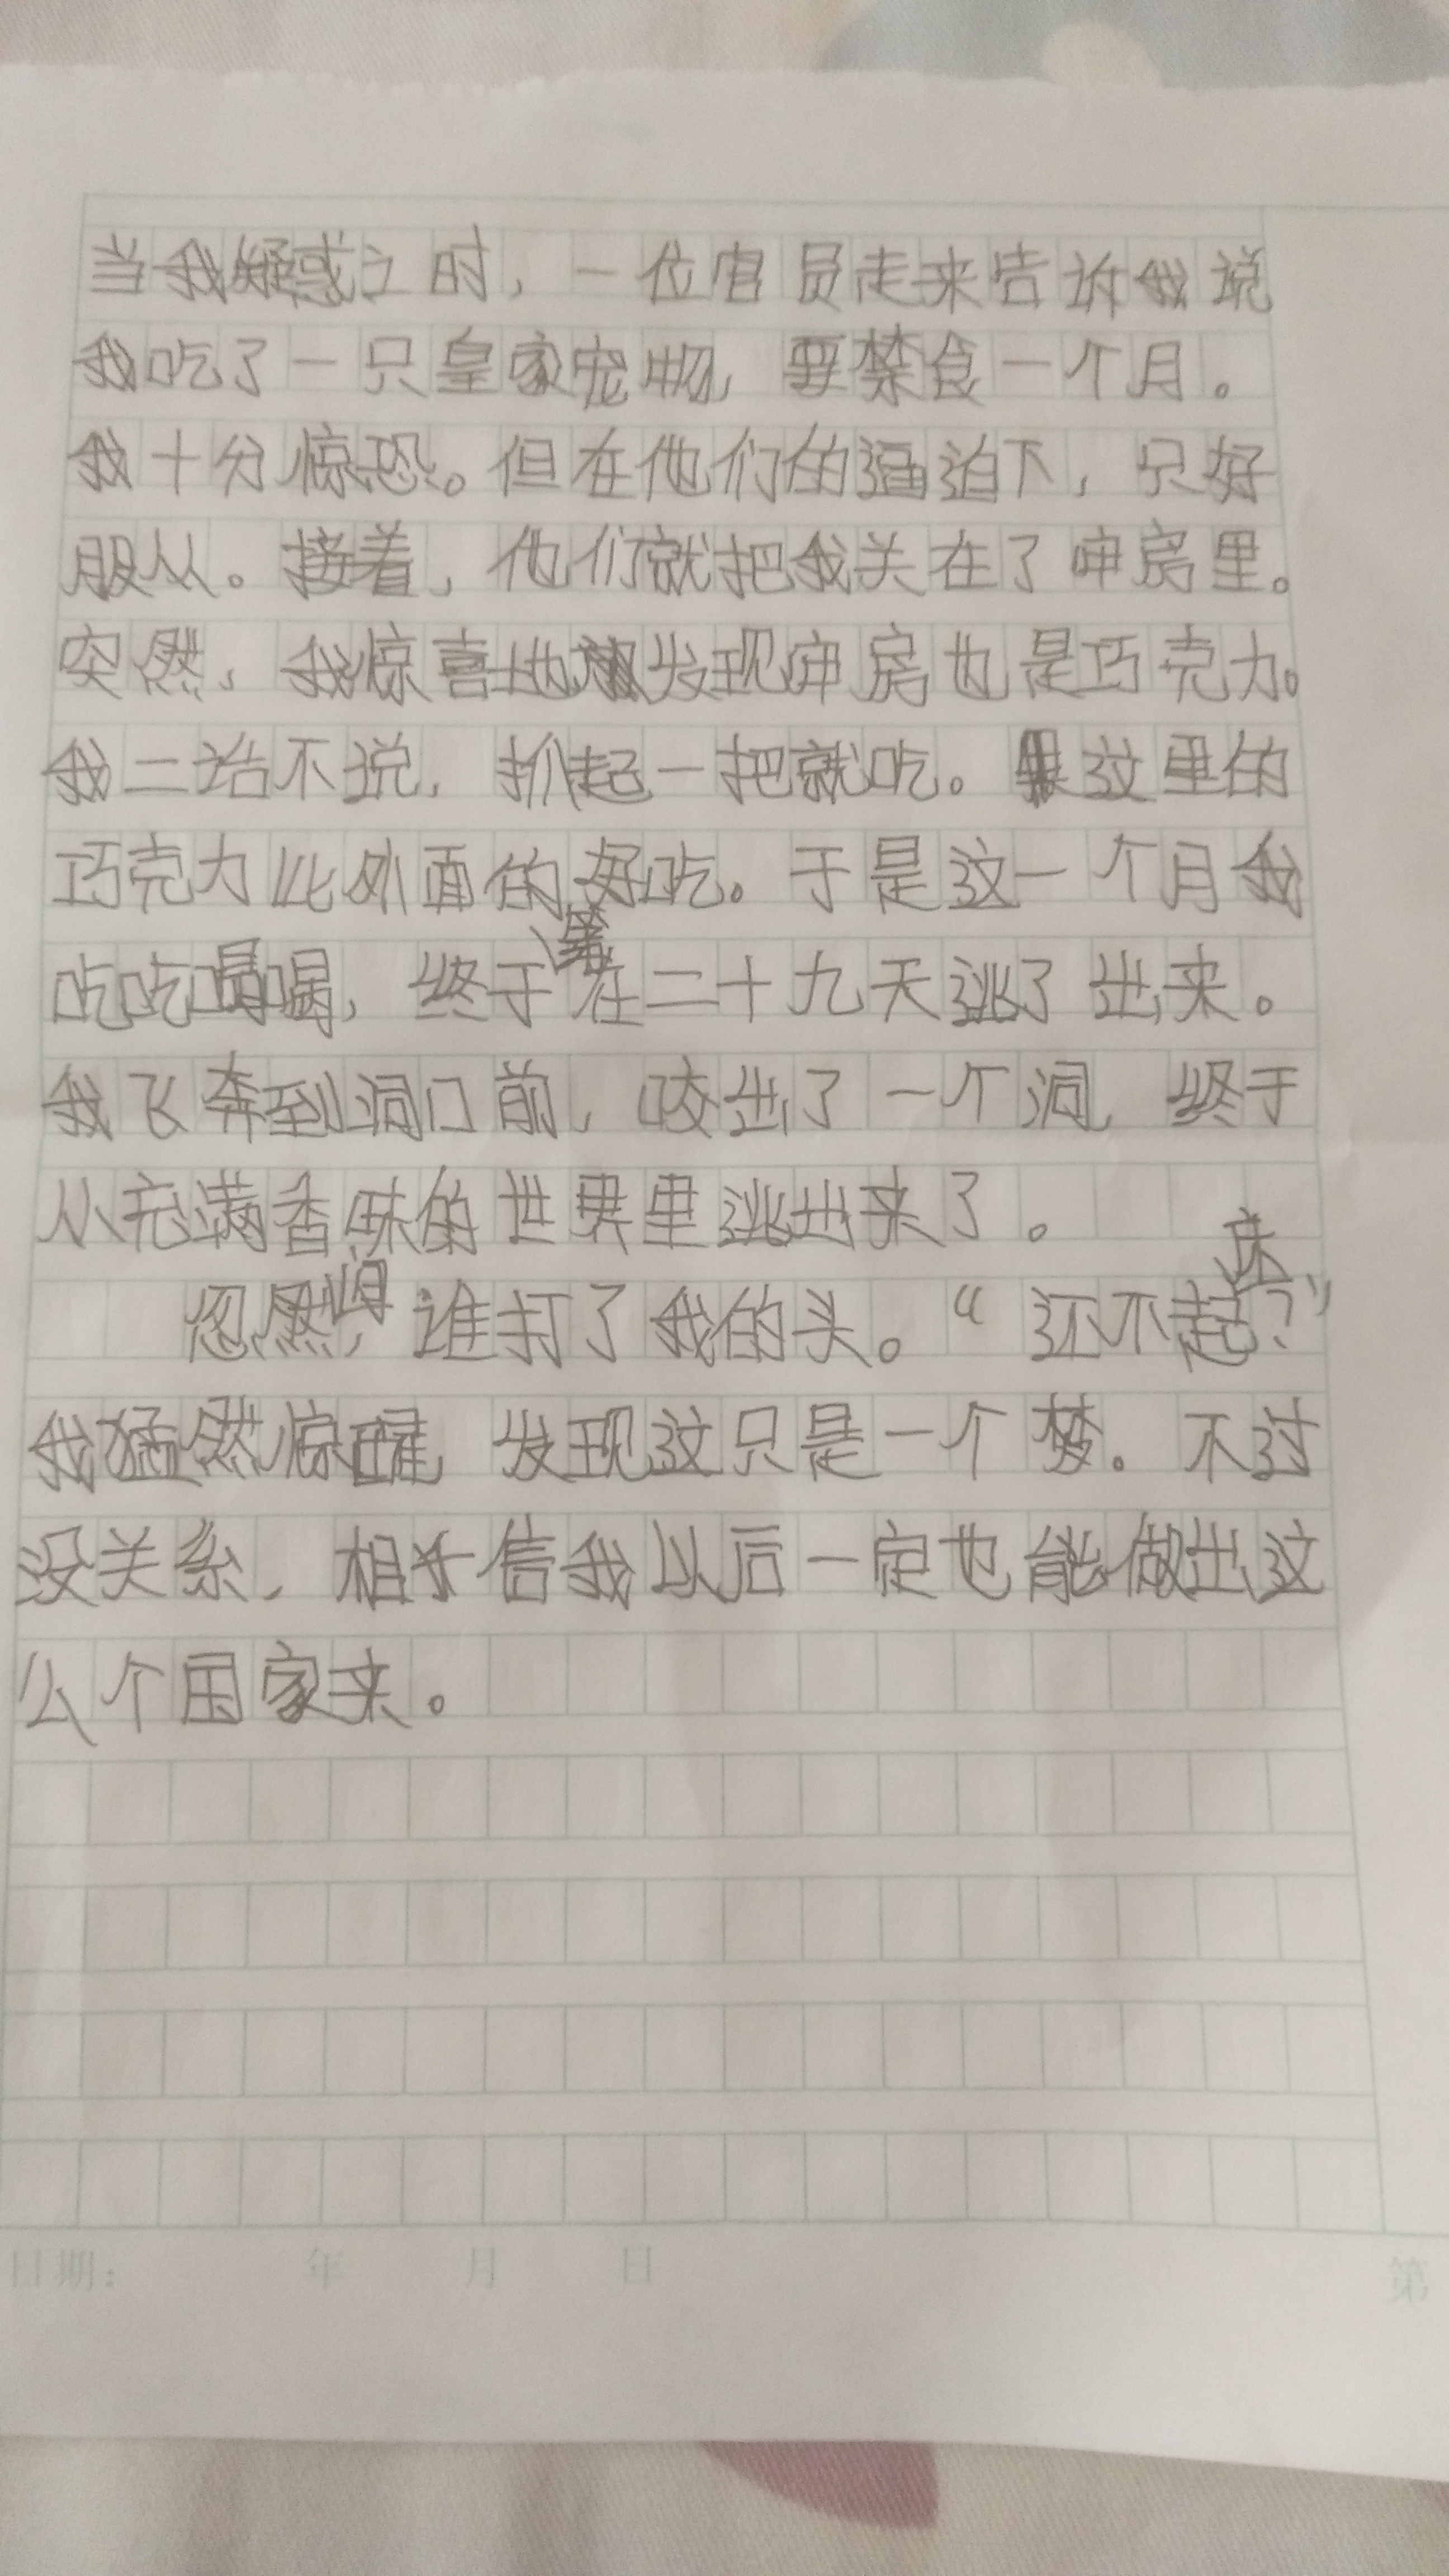 当我疑惑之时，一位官员走来告诉我说
我吃了一只皇家宠物，要禁食一个月。
我十分惊恐。但在他们的逼迫下，只好
服从。接着，他们就把我关在了牢房里。
突然，我惊喜地发现牢房也是巧克力。
我二话不说，抓起一把就吃。这里的
巧克力比外面的好吃。于是这一个月我
吃吃喝喝，终于在第二十九天逃了出来。
我飞奔到洞门前，咬出了一个洞，终于
从充满香味的世界里逃出来了。
忽然间，谁打了我的头。“还不起床？”
我猛然惊醒，发现这只是一个梦。不过
没关系，相信我以后一定也能做出这
么个国家来。
日期： 年 月 日 第